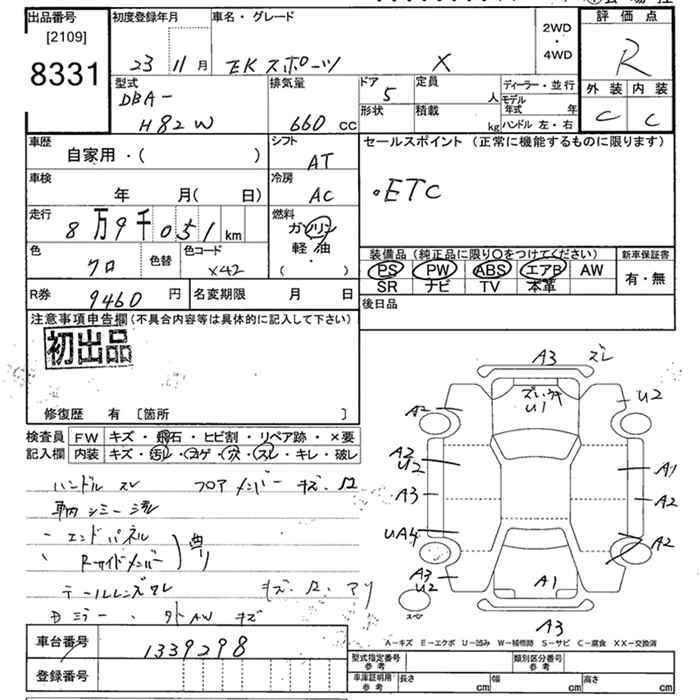 出品番号
[2109]
8331
初度登録年月
23 11月
車名・グレード
EKスポーツ X
2WD
・
4WD
評価点
R
外装 内装
C C
型式
DBA-
H82W
排気量
660 cc
ドア
5
形状
定員
人
積載
kg
ディーラー・並行
モデル年式 年
ハンドル 左・右
車歴
自家用・( )
シフト
AT
セールスポイント(正常に機能するものに限ります)
・ETC
車検
年 月( 日)
冷房
AC
走行
8万9千051km
燃料
ガソリン
軽・油
( ・ )
色
クロ
色替
色コード
X42
装備品(純正品に限り〇をつけてください)
PS PW ABS エアB AW
SR ナビ TV 本革
新車保証書
有・無
R券
9460 円
名変期限 月 日
後日品
注意事項申告欄(不具合内容等は具体的に記入して下さい)
初出品
修復歴 有〔箇所 〕
検査員記入欄
FW キズ・飛石・ヒビ割・リペア跡・×要
内装 キズ・汚レ・コゲ・穴・スレ・キレ・破レ
ハンドル スレ フロアメンバー キズ
車内シミー汚レ
エンドパネル
Rサイドメンバー
曲リ
テールレンズワレ
Dミラー・外AW キズ
A3 ズレ
ズレ
U1
A2
U2
A2
U2
A3
A1
A2
UA4
A2
A3
U2
A1
スペア
A3
A-キズ E-エクボ U-凹み W-補修跡 S-サビ C-腐食 XX-交換済
車台番号
1339298
登録番号
型式指定番号
参考
類別区分番号
参考
車庫証明用
参考
長さ cm
幅 cm
高さ cm